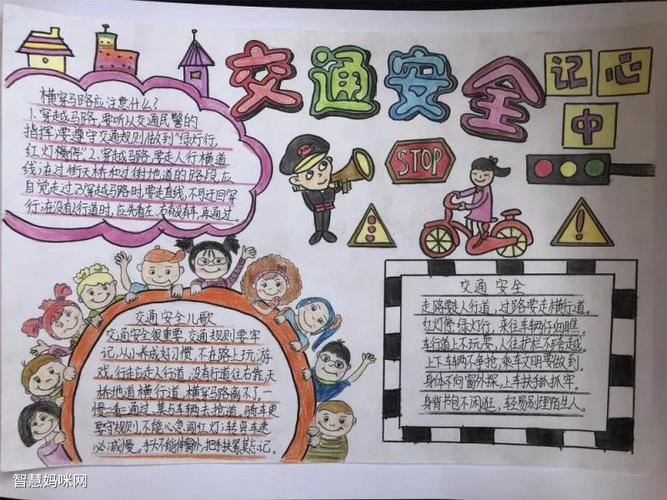 交通安全
记心
中
横穿马路应注意什么？
1、穿越马路，要听从交通民警的
指挥；要遵守交通规则，做到"绿灯行，
红灯停"。2、穿越马路，要走人行横道
线；在过街天桥和过街地道的路段，应
自觉走过。3、穿越马路时，要走直线，不可迂回穿
行；在没有人行道时，应先看左，右看没有车，再通过。
STOP
交通安全儿歌
交通安全很重要，交通规则要牢
记，从小养成好习惯，不在路上玩游
戏，行走应走人行道，没有行道往右靠，天
桥地道横行道，横穿马路离不了，一
慢二看三通过，莫与车辆去抢道，骑车更
要守规则，不能心急闯红灯；转弯车速
必减慢。手大不能伸窗外，把手扶紧莫忘记。
交通安全
走路要走人行道，过路要走横行道。
红灯停绿灯行，来往车辆仔细瞧。
车行道上不玩耍，人往护栏不跨越。
上下车辆不争抢，乘车文明要做到。
身体不向窗外探，上车扶挤抓牢。
身背书包不闲逛，轻易别理陌生人。
智慧妈咪网